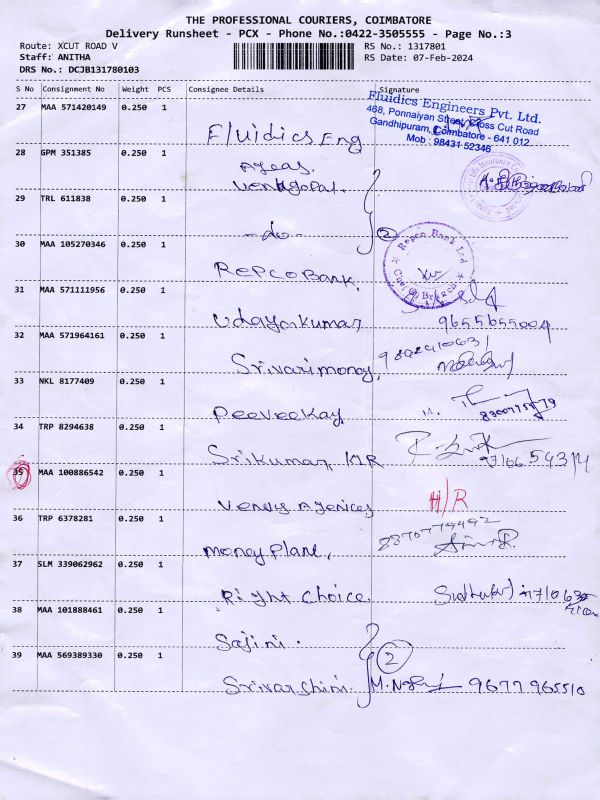 THE PROFESSIONAL COURIERS, COIMBATORE
Delivery Runsheet - PCX - Phone No.:0422-3505555 - Page No.:3
Route: XCUT ROAD V
RS No.: 1317801
Staff: ANITHA
RS Date: 07-Feb-2024
DRS No.: DCJB131780103
S No Consignment No Weight PCS Consignee Details Signature
27 MAA 571420149 0.250 1
Fluidics Eng
Fluidics Engineers Pvt. Ltd.
468, Ponnaiyan Street, Cross Cut Road
Gandhipuram, Coimbatore - 641 012.
Mob : 98431 52346
28 GPM 351385 0.250 1
Venugopal.
29 TRL 611838 0.250 1
-do-
2
30 MAA 105270346 0.250 1
REPCO BANK.
Repco Bank Ltd
31 MAA 571111956 0.250 1
Udayakumar
9655655004
32 MAA 571964161 0.250 1
Srivari money,
33 NKL 8177409 0.250 1
Peeveekay,
34 TRP 8294638 0.250 1
Srikumar KIR
35 MAA 100886542 0.250 1
H/R
36 TRP 6378281 0.250 1
Money Plant,
37 SLM 339062962 0.250 1
Right Choice
38 MAA 101888461 0.250 1
Sajini.
39 MAA 569389330 0.250 1
2
Srivarshini.
9677965510